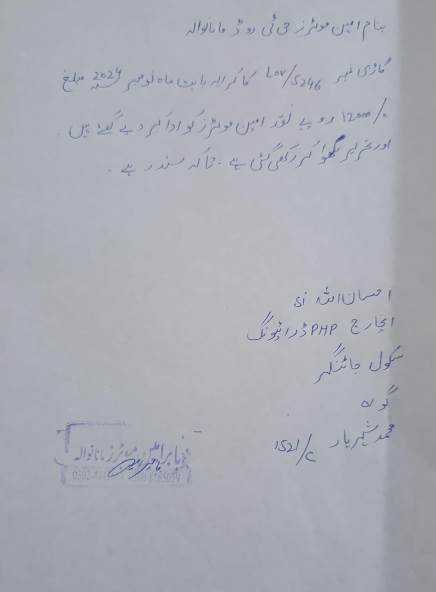 بنام امین موٹرز جی ٹی روڈ مانانوالہ
گاڑی نمبر LOV/5246 کا کرایہ بابت ماہ نومبر 2024 مبلغ
12000/= روپے نقد امین موٹرز کو ادا کر دیے گئے ہیں۔
اور تحریر لکھوا کر رکھی گئی ہے۔ تاکہ سند رہے۔
احسان اللہ si
انچارج PHP ڈرائیونگ
سکول جاتنگر
گواہ
محمد شہریار 1521/c
بابر امین موٹرز مانانوالہ